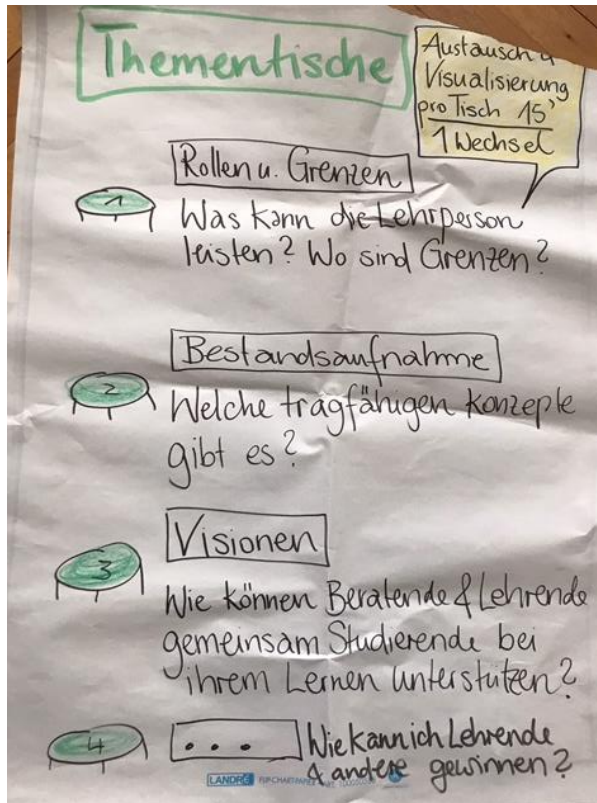 Thementische
Austausch u
Visualisierung
pro Tisch 15'
1 Wechsel
Rollen u. Grenzen
1
Was kann die Lehrperson
leisten? Wo sind Grenzen?
Bestandsaufnahme
2
Welche tragfähigen Konzepte
gibt es?
Visionen
3
Wie können Beratende & Lehrende
gemeinsam Studierende bei
ihrem Lernen unterstützen?
4
...
Wie kann ich Lehrende
& andere gewinnen?
LANDRÉ